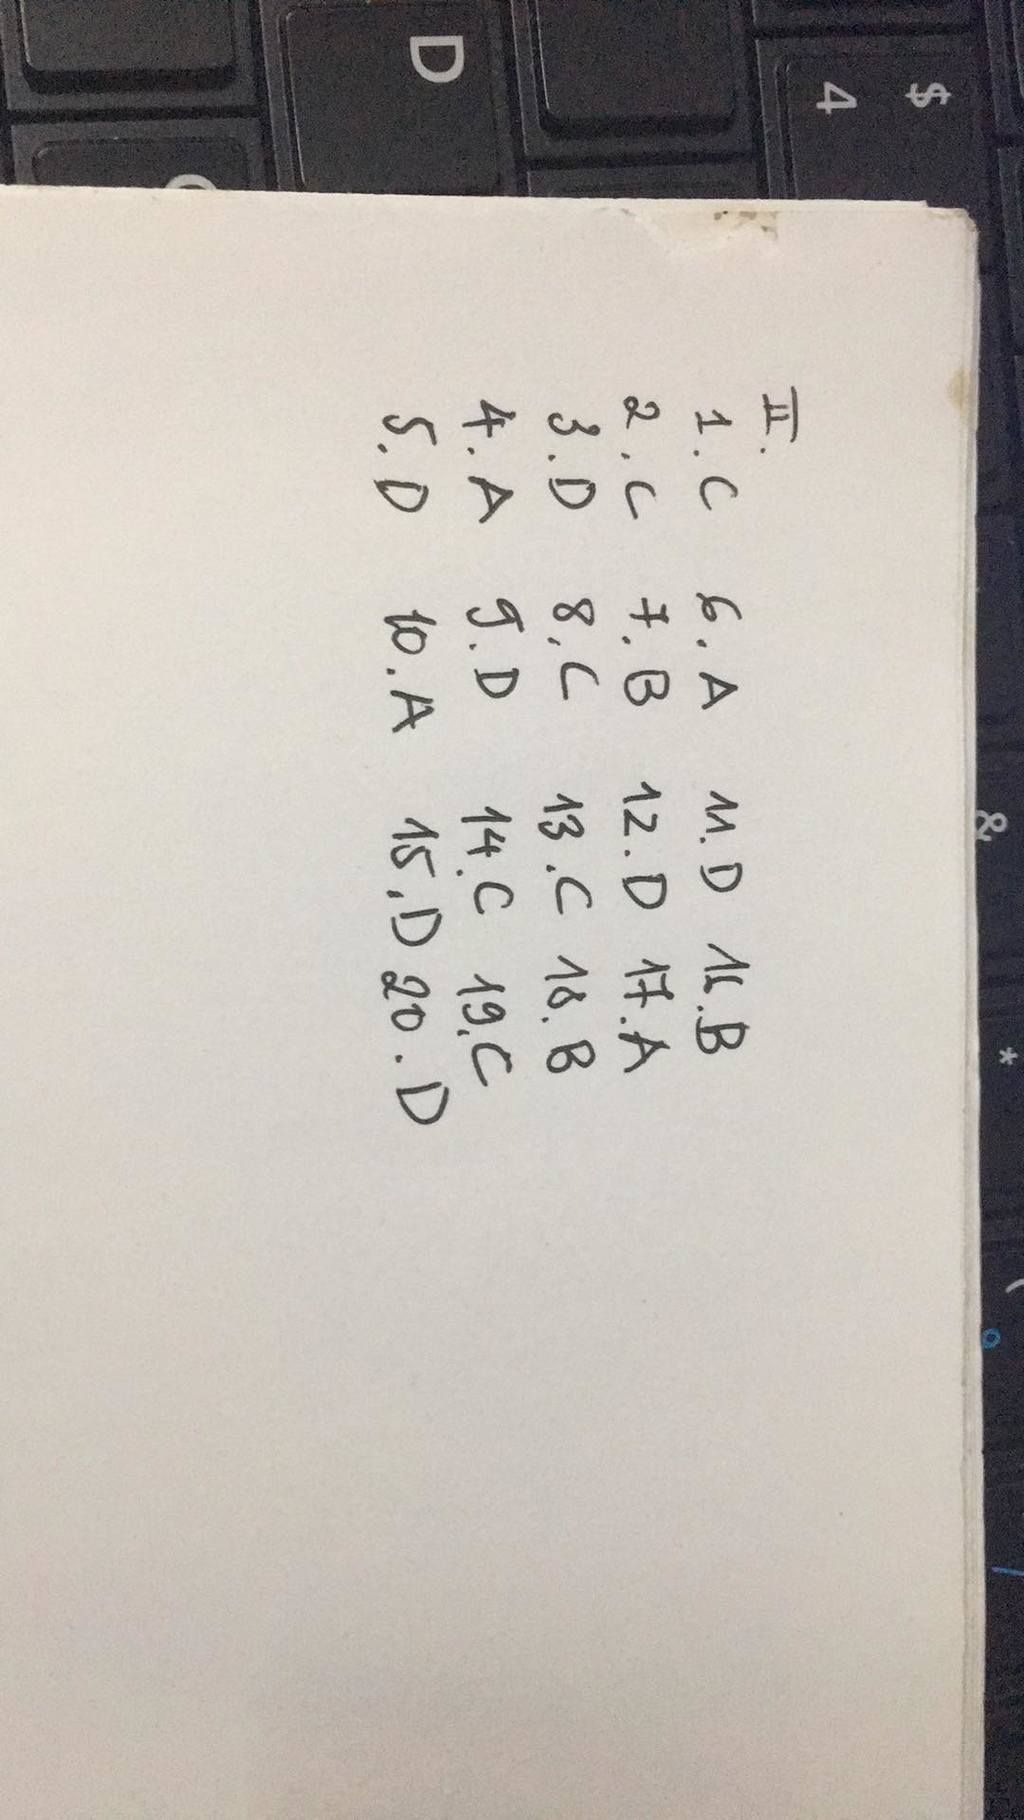 II.
1. C 6. A 11. D 16. B
2. C 7. B 12. D 17. A
3. D 8. C 13. C 18. B
4. A 9. D 14. C 19. C
5. D 10. A 15. D 20. D
D
$
4
&
*
(